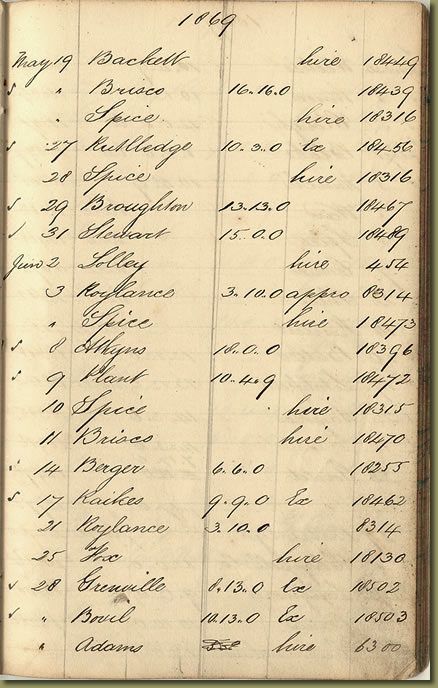 1869
May 19 Backett hire 18449
s " Brisco 16.16.0 18439
" Spice hire 18316
s 27 Rutlledge 10.3.0 Ex 18456
28 Spice hire 18316
s 29 Broughton 13.13.0 18467
s 31 Stewart 15.0.0 18489
June 2 Lolley hire 454
3 Roylance 3.10.0 appro 8314
" Spice hire 18473
s 8 Atkyns 18.0.0 18396
s 9 Plant 10.4.9 18472
10 Spice hire 18315
11 Brisco hire 18470
s 14 Berger 6.6.0 18255
s 17 Raikes 9.9.0 Ex 18462
21 Roylance 3.10.0 8314
25 Fox hire 18130
s 28 Grenville 8.13.0 Ex 18502
s " Bovil 10.13.0 Ex 18503
" Adams hire 6300